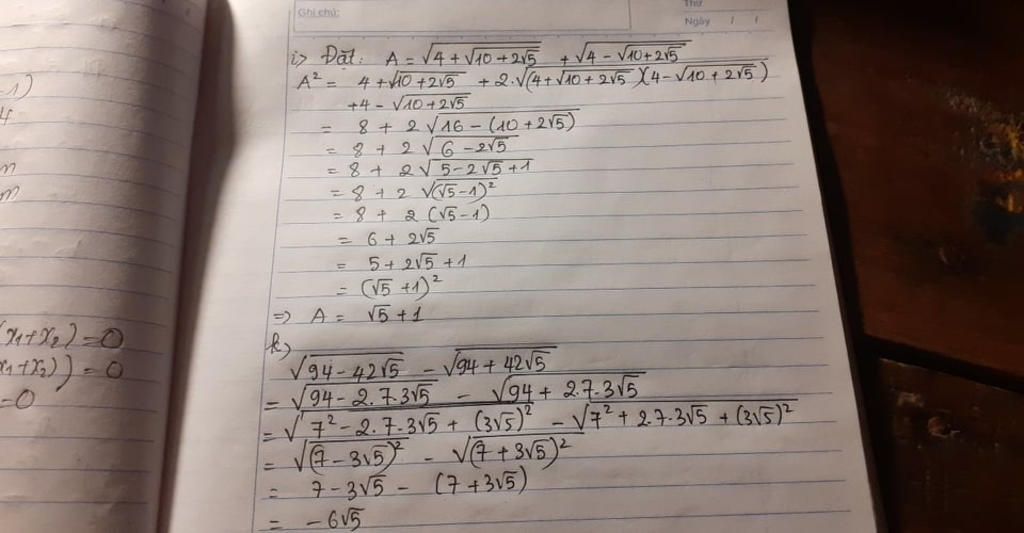 Ghi chú:
Thứ
Ngày / /
-1)
4
m
m
(x₁+x₂)=0
x₁+x₂))=0
=0
i> Đặt: A = √(4+√(10+2√5)) + √(4-√(10+2√5))
A² = 4+√(10+2√5) + 2.√((4+√(10+2√5))(4-√(10+2√5)))
+4-√(10+2√5)
= 8 + 2√(16-(10+2√5))
= 8 + 2√(6-2√5)
= 8 + 2√(5-2√5+1)
= 8 + 2√((√5-1)²)
= 8 + 2(√5-1)
= 6 + 2√5
= 5 + 2√5 + 1
= (√5+1)²
=> A = √5+1
k)
√(94-42√5) - √(94+42√5)
= √(94-2.7.3√5) - √(94+2.7.3√5)
= √(7²-2.7.3√5+(3√5)²) - √(7²+2.7.3√5+(3√5)²)
= √((7-3√5)²) - √((7+3√5)²)
= 7-3√5 - (7+3√5)
= -6√5